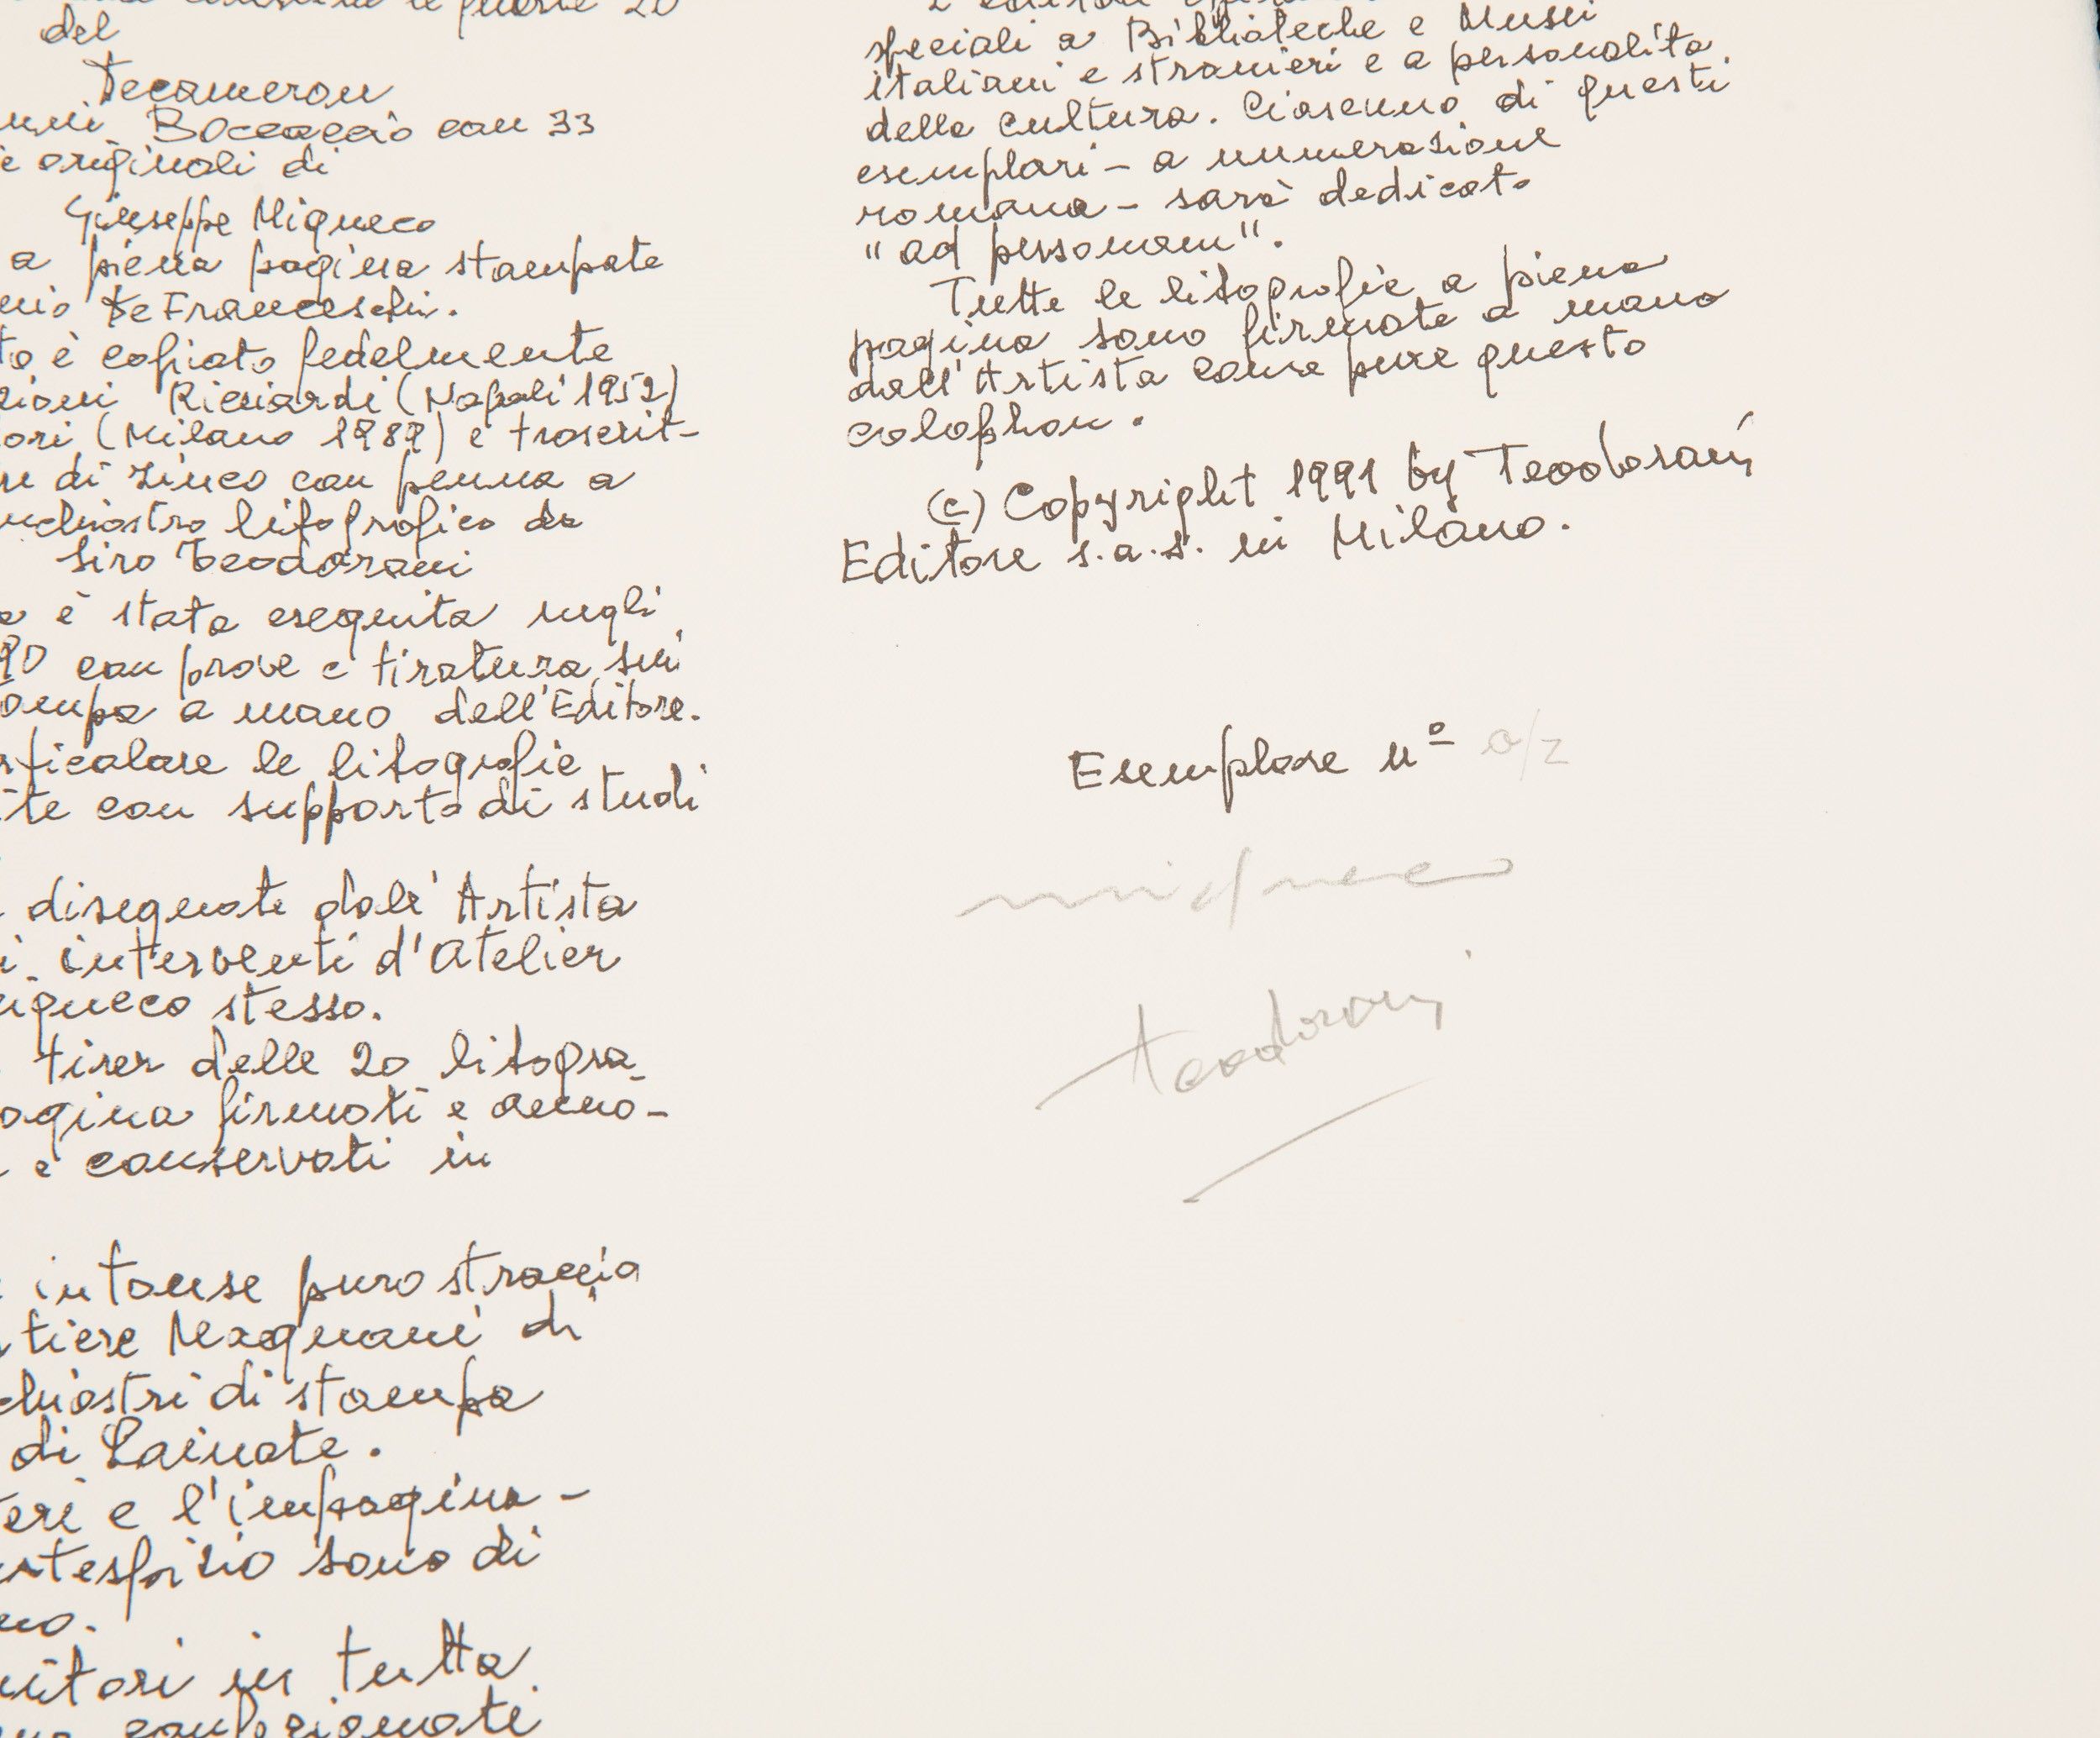 del
Decameron
Boccaccio con 33
originali di
Giuseppe Migneco
a piena pagina stampate
De Franceschi.
è copiato fedelmente
Ricciardi (Napoli 1952)
(Milano 1989) e trascrit-
di zinco con penna a
litografico da
Siro Teodorani
è stata eseguita negli
90 con prove e tiratura sui
a mano dell'Editore.
le litografie
con supporto di studi
disegnate dall'Artista
interventi d'Atelier
stesso.
tirer delle 20 litogra-
firmati e anno-
e conservati in
intonse puro straccio
Magnani di
di stampa
di Lainate.
e l'impagina-
sono di
in tutta
speciali a Biblioteche e Musei
italiani e stranieri e a personalità
della cultura. Ciascuno di questi
esemplari - a numerazione
romana - sarà dedicato
"ad personam".
Tutte le litografie a piena
pagina sono firmate a mano
dall'Artista come pure questo
colophon.
(c) Copyright 1991 by Teodorani
Editore s.a.s. in Milano.
Esemplare nº o/z
migneco
teodorani